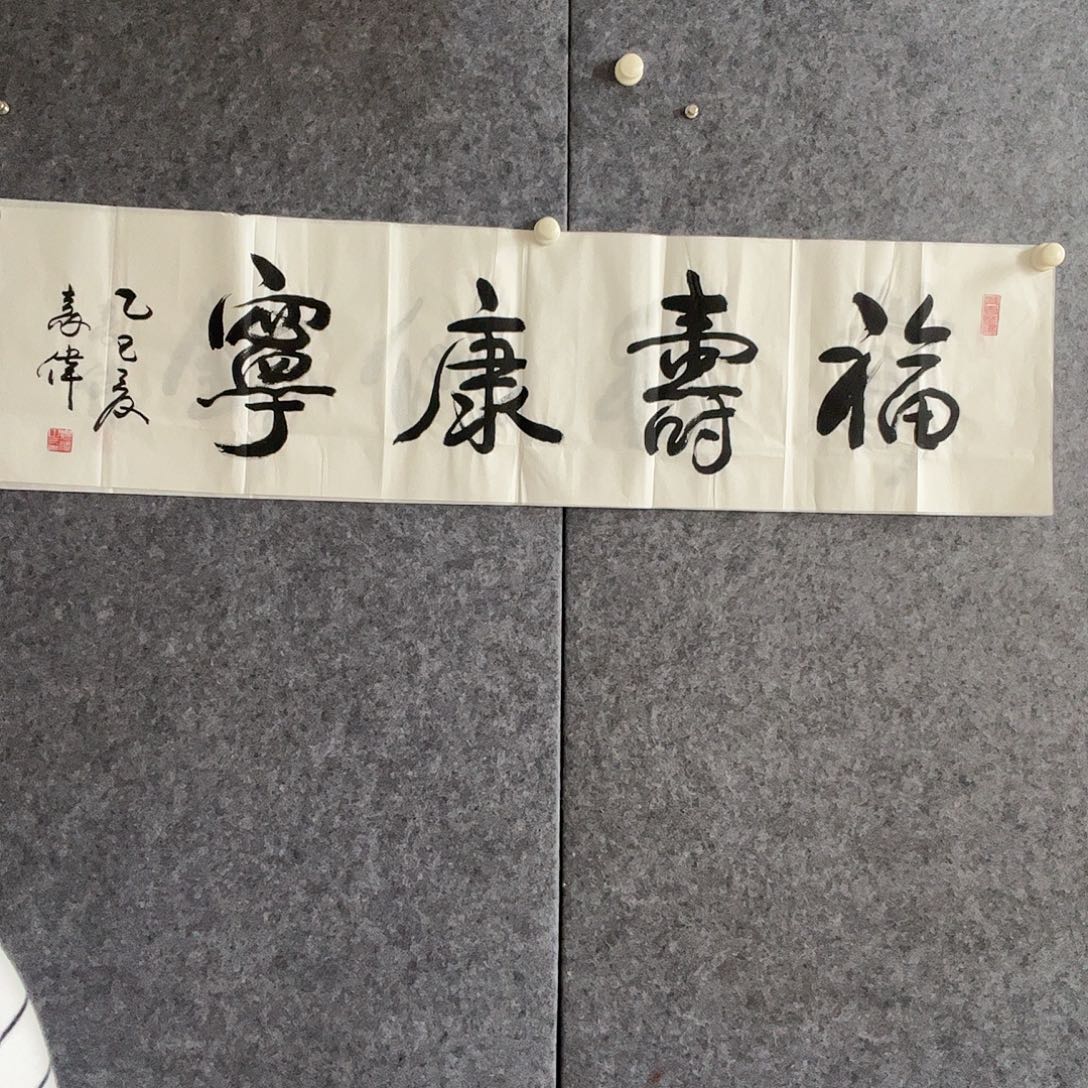 福壽康寧
乙巳夏
春偉